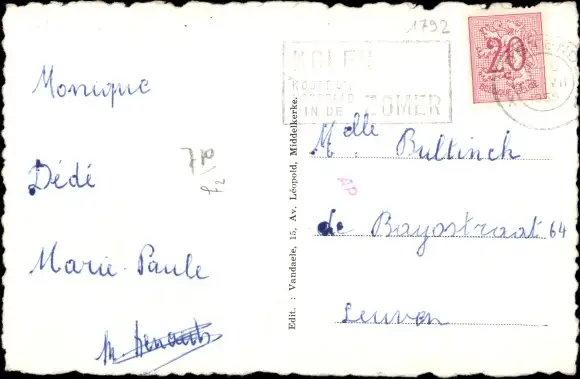 1792
Monique
Dédé
Marie-Paule
Edit. : Vandaele, 15, Av. Léopold, Middelkerke.
KOLEN
IN DE ZOMER
20
Melle. Bultinck
de Bayostraat 64
Leuven
AP